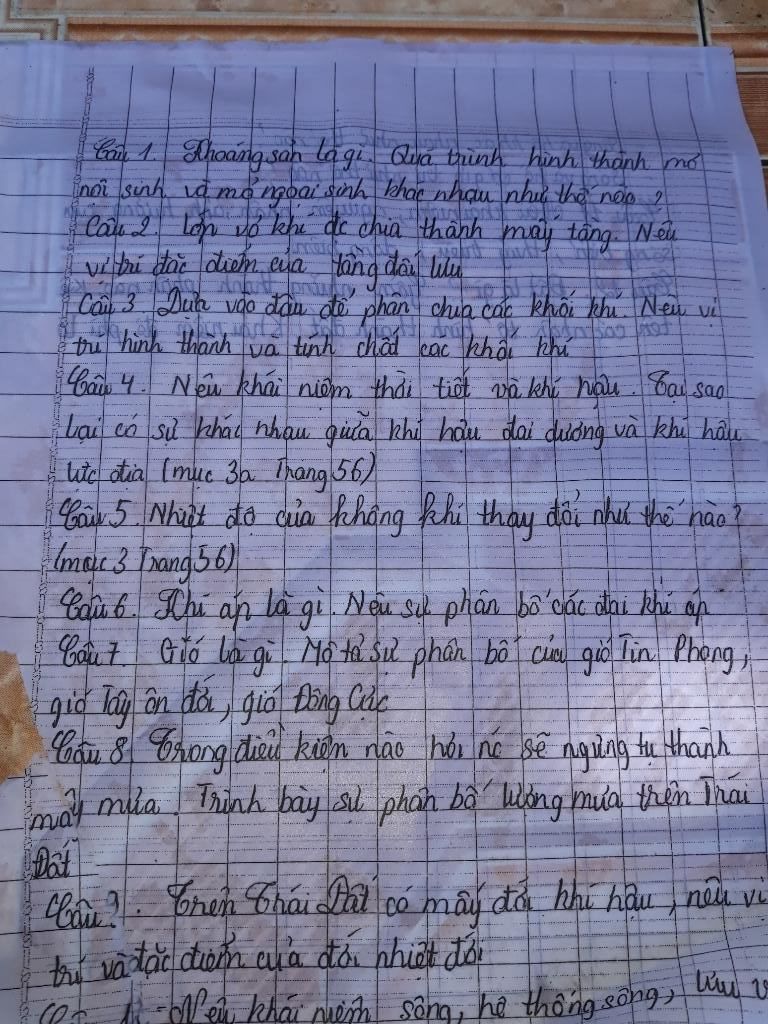 Câu 1. Khoáng sản là gì. Quá trình hình thành mỏ
nội sinh và mỏ ngoại sinh khác nhau như thế nào?
Câu 2. Lớp vỏ khí đc chia thành mấy tầng. Nêu
vị trí đặc điểm của tầng đối lưu
Câu 3 Dựa vào đâu để phân chia các khối khí. Nêu vị
trí hình thành và tính chất các khối khí
Câu 4. Nêu khái niệm thời tiết và khí hậu. Tại sao
lại có sự khác nhau giữa khí hậu đại dương và khí hậu
lục địa (mục 3a Trang 56)
Câu 5. Nhiệt độ của không khí thay đổi như thế nào?
(mục 3 Trang 56)
Câu 6. Khí áp là gì. Nêu sự phân bố các đai khí áp
Câu 7. Gió là gì. Mô tả sự phân bố của gió Tín Phong,
gió Tây ôn đới, gió Đông Cực
Câu 8. Trong điều kiện nào hơi nc sẽ ngưng tụ thành
mây mưa. Trình bày sự phân bố lượng mưa trên Trái
Đất
Câu 9. Trên Trái Đất có mấy đới khí hậu, nêu vị
trí và đặc điểm của đới nhiệt đới
Nêu khái niệm sông, hệ thống sông, lưu v